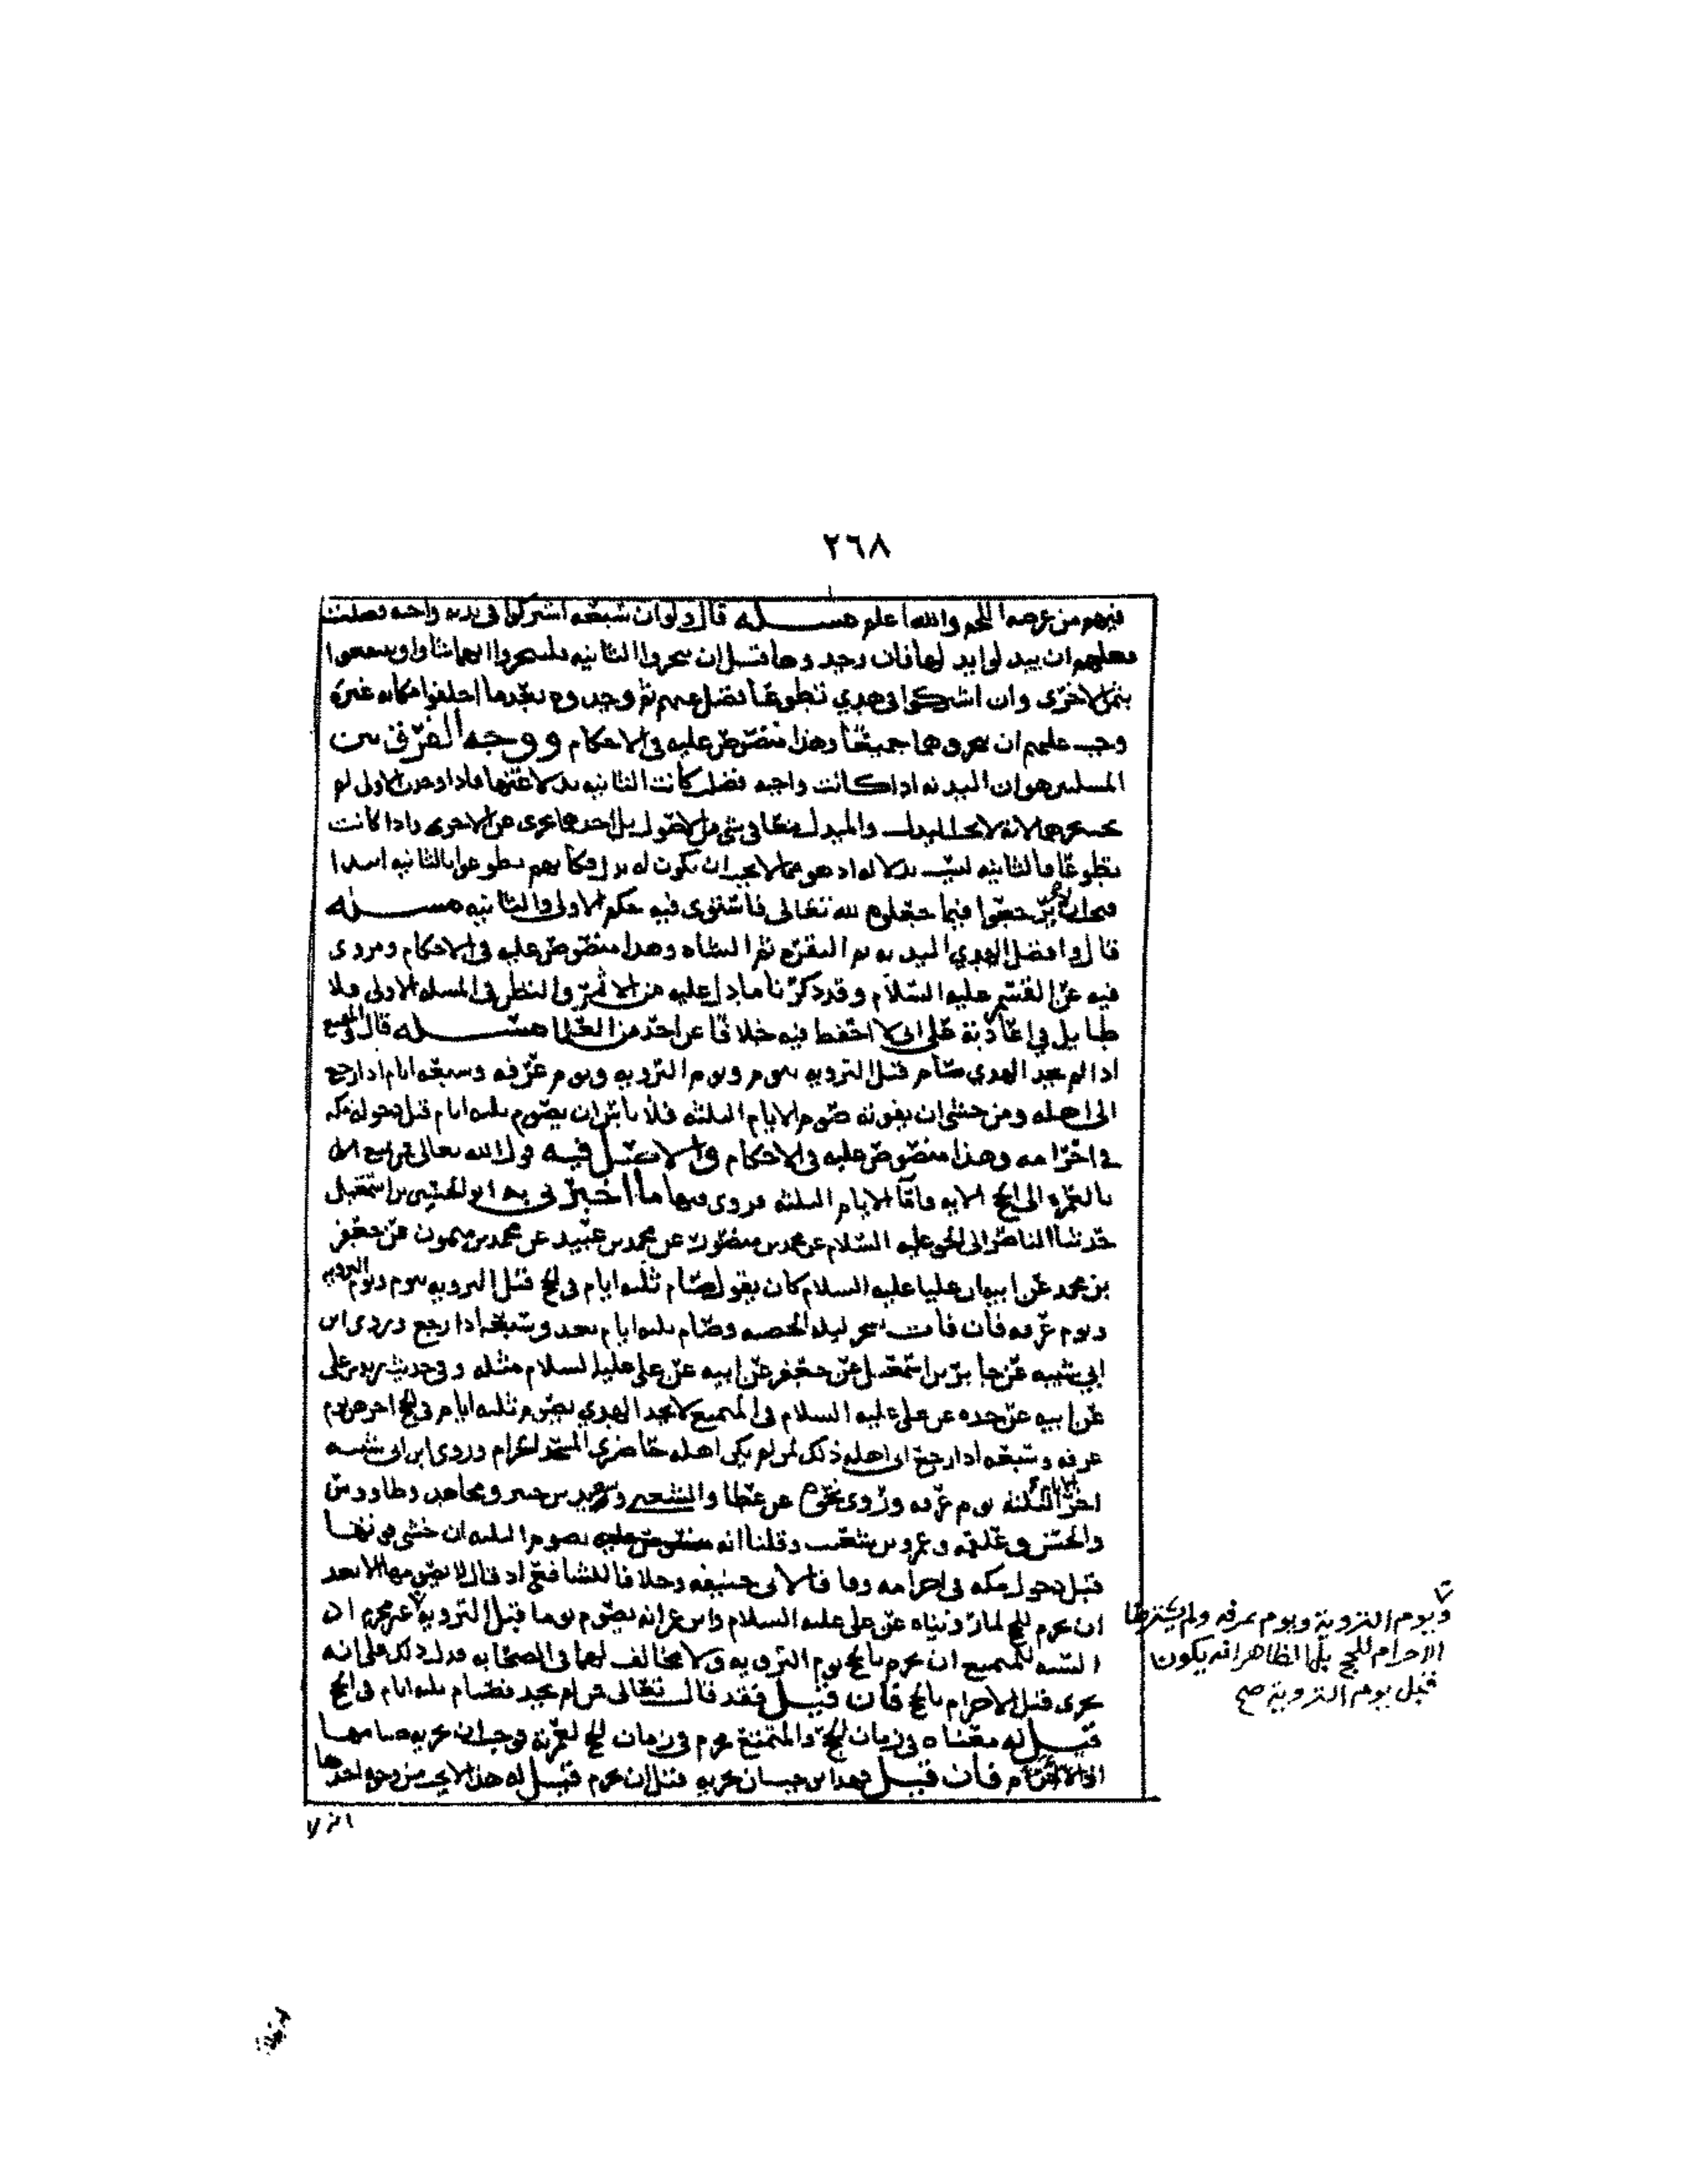 ٢٦٨
فيهم من عرضه اللحم والله اعلم مسـله قال ولو ان سبعه اشتركوا في بدنه واجبه فضلت
فعليهم ان يبدلوا بدلها فان وجدوها قبل ان ينحروا الثانيه فلينحروا ايهما شاوا وينتفعوا
بثمن الاخرى وان اشتركوا في هدي تطوعا فضل عنهم ثم وجدوه بعد ما اخلفوا مكانه غيره
وجب عليهم ان ينحروهما جميعا وهذا منصوص عليه في الاحكام ووجه الفرق بين
المسلتين هو ان البدنه اذا كانت واجبه فضلت كانت الثانيه بدلا عنها فاذا وجدت الاولى لم
والمبدل معا في شي من الاصول بل احدهما يجزي عن الاخرى واذا كانت
تطوعا فالثانيه ليست بدلا له اذ هو مما لا يجب ان يكون له بدل فكانهم تطوعوا بالثانيه ابتدا
يرجعوا فيما جعلوه لله تعالى فاستوى فيه حكم الاولى والثانيه مسـله
قال وافضل الهدي البدنه ثم البقره ثم الشاه وهذا منصوص عليه في الاحكام ومروي
فيه عن القسم عليه السلام وقد ذكرنا ما دل عليه من الاثر والنظر في المسله الاولى فلا
طايل في اعادته على اني لا احفظ فيه خلافا عن احد من العلما مسـله قال والمتمتع
اذا لم يجد الهدي صام قبل الترويه بيوم ويوم الترويه ويوم عرفه وسبعه ايام اذا رجع
الى اهله ومن خشي ان يفوته صوم الايام الثلثه فلا باس ان يصوم ثلثه ايام قبل دخوله مكه
في احرامه وهذا منصوص عليه في الاحكام والاصل فيه قول الله تعالى فمن تمتع
بالعمره الى الحج الايه فاما الايام الثلثه فروى فيها ما اخبرني به ابو الحسين بن اسمعيل
حدثنا الناصر الى الحق عليه السلام عن محمد بن منصور عن محمد بن عبيد عن محمد بن ميمون عن جعفر
بن محمد عن ابيه ان عليا عليه السلام كان يقول صيام ثلثه ايام في الحج قبل الترويه بيوم ويوم الترويه
ويوم عرفه فان فات تسحر ليله الحصبه وصام ثلثه ايام بعد وسبعه اذا رجع وروى ابن
ابي شيبه عن حاتم بن اسمعيل عن جعفر عن ابيه عن علي عليه السلام مثله وفي حديث زيد بن علي
عن ابيه عن جده عن علي عليه السلام في المتمتع لا يجد الهدي يصوم ثلثه ايام في الحج اخرهن يوم
عرفه وسبعه اذا رجع الى اهله ذلك لمن لم يكن اهله حاضري المسجد الحرام وروى ابن ابي شيبه
اخر الثلثه يوم عرفه وروى نحوه عن عطا والشعبي وسعيد بن جبير ومجاهد وطاووس
والحسن وعلقمه وعمرو بن شعيب وقلنا انه يصوم الثلثه ان خشي فوتها
قبل دخول مكه في احرامه وفاقا لابي حنيفه وخلافا للشافعي اذ قال لا يصومها الا بعد
ان يحرم للحج لما رويناه عن علي عليه السلام وابن عمر انه يصوم يوما قبل الترويه غير محرم اذ
السنه للمتمتع ان يحرم بالحج يوم الترويه ولا مخالف لهما في الصحابه فدل ذلك على انه
يجزي قبل الاحرام بالحج فان قيل فقد قال تعالى فمن لم يجد فصيام ثلثه ايام في الحج
قيل له معناه في زمان الحج والمتمتع محرم في زمان الحج لعمرته فوجب ان يجزيه صيامها
فان قيل فهذا يوجب ان يجزيه قبل ان يحرم قيل له هذا لا يجب من وجوه احدها
ويوم التروية ويوم عرفه ولم يشترطا
الاحرام للحج بل الظاهر انه يكون
قبل يوم التروية صح